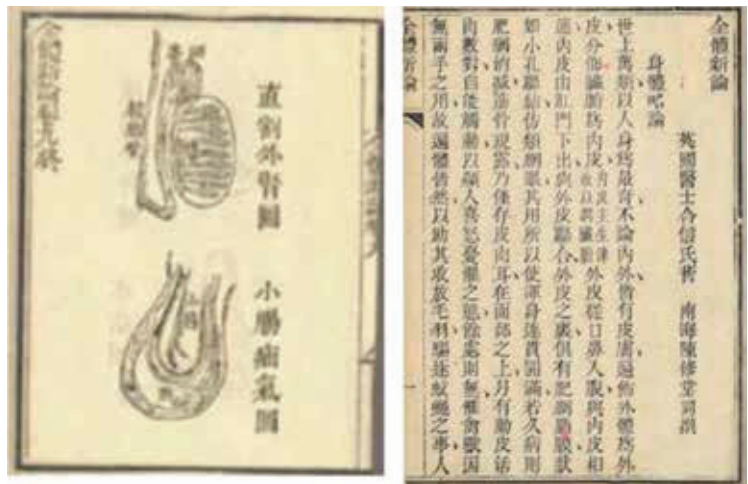 直割外腎圖
小腸疝氣圖
全體新論
英國醫士合信氏著 南海陳修堂同撰
身體略論
世上萬類以人身爲最奇不論內外皆有皮膚遍佈外體爲外
皮分佈臟腑爲內皮內皮主生津液以潤臟腑外皮從口鼻入腹與內皮相
連內皮由肛門下出與外皮聯合外皮之裏俱有肥網筋膜狀
如小孔聯結彷類網眼其用所以使渾身連貫圓滿若久病則
肥網消減筋骨現露乃僅存皮肉耳在面部之上另有動皮活
肉數對自能觸動以顯人喜怒憂懼之態餘處則無惟禽獸因
無兩手之用故遍體皆然以助其收放毛羽驅逐蚊蠅之事人
全體新論